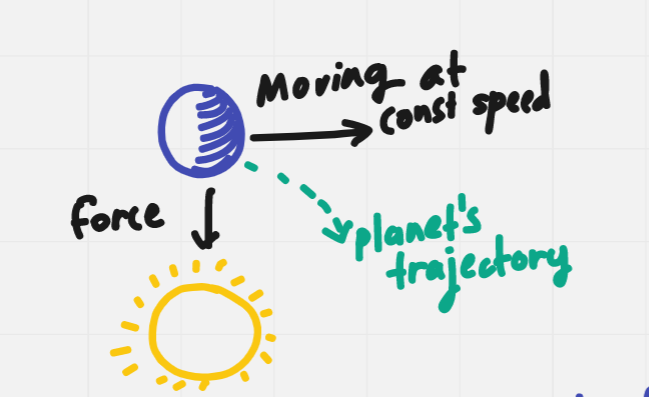 Moving at
const speed
force
planet's
trajectory